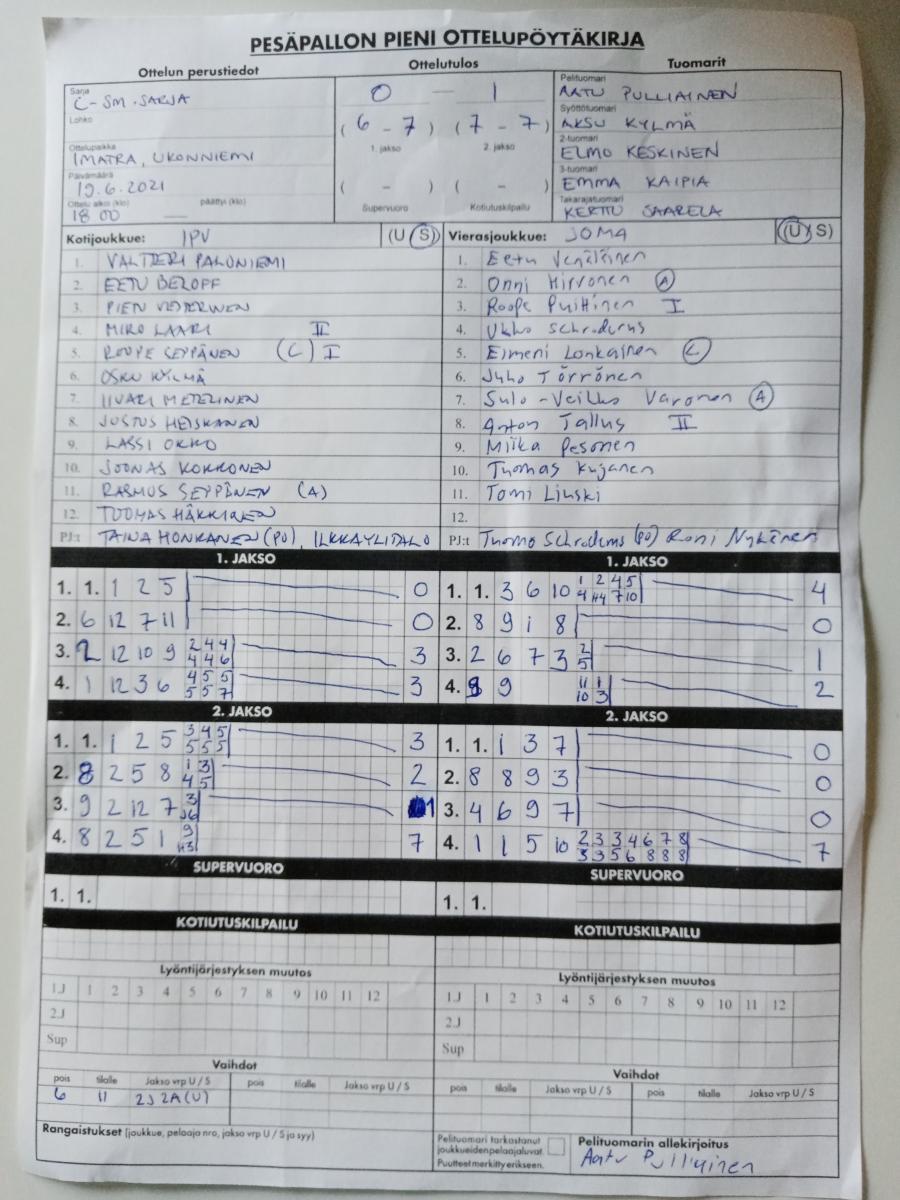 PESÄPALLON PIENI OTTELUPÖYTÄKIRJA
Ottelun perustiedot
Ottelutulos
Tuomarit
Sarja
C-SM-SARJA
Lohko
Ottelupaikka
IMATRA, UKONNIEMI
Päivämäärä
19.6.2021
Ottelu alkoi (klo) päättyi (klo)
18 00 —
0 — 1
(6 - 7) (7 - 7)
1. jakso 2. jakso
( - ) ( - )
Supervuoro Kotiutuskilpailu
Pelituomari
AATU PULLIAINEN
Syöttötuomari
AKSU KYLMÄ
2-tuomari
ELMO KESKINEN
3-tuomari
EMMA KAIPIA
Takarajatuomari
KERTTU SAARELA
Kotijoukkue: IPV (U S)
1. VALTTERI PALONIEMI
2. EETU BELOFF
3. PIEN
4. MIRO LAARI II
5. ROOPE SEPPÄNEN (C) I
6. OSKU KYLMÄ
7. IIVARI METELINEN
8. JUSTUS HEISKANEN
9. LASSI OKKO
10. JOONAS KOKKONEN
11. RASMUS SEPPÄNEN (A)
12. TUOMAS HÄKKINEN
PJ:t TAINA HONKANEN (PO), ILKKA YLITALO
Vierasjoukkue: JOMA (U S)
1. Eetu Venäläinen
2. Onni Hirvonen A
3. Roope Puittinen I
4. Ukko Schroderus
5. Eimeni Lonkainen C
6. Juho Törrönen
7. Sulo-Veikko Varonen A
8. Anton Tallus II
9. Miika Pesonen
10. Tuomas Kujanen
11. Tomi Linski
12.
PJ:t Tuomo Schroderus (PO) Roni Nykänen
1. JAKSO
1. 1. 1 2 5 0
2. 6 12 7 11 0
3. 2 12 10 9 2 4 4 3
4 4 6
4. 1 12 3 6 4 5 5 3
5 5 7
1. JAKSO
1. 1. 3 6 10 1 2 4 5 4
4 H4 7 10
2. 8 9 1 8 0
3. 2 6 7 3 2 1
5
4. 8 9 11 1 2
10 3
2. JAKSO
1. 1. 1 2 5 3 4 5 3
5 5 5
2. 8 2 5 8 1 3 2
4 5
3. 9 2 12 7 3 1
J6
4. 8 2 5 1 9 7
H3
2. JAKSO
1. 1. 1 3 7 0
2. 8 8 9 3 0
3. 4 6 9 7 0
4. 1 1 5 10 2 3 3 4 6 7 8 7
3 3 5 6 8 8 8
SUPERVUORO
1. 1.
SUPERVUORO
1. 1.
KOTIUTUSKILPAILU
KOTIUTUSKILPAILU
Lyöntijärjestyksen muutos
1J 1 2 3 4 5 6 7 8 9 10 11 12
2J
Sup
Lyöntijärjestyksen muutos
1J 1 2 3 4 5 6 7 8 9 10 11 12
2J
Sup
Vaihdot
pois tilalle Jakso vrp U / S pois tilalle Jakso vrp U / S
6 11 2J 2A(U)
Vaihdot
pois tilalle Jakso vrp U / S pois tilalle Jakso vrp U / S
Rangaistukset (joukkue, pelaaja nro, jakso vrp U / S ja syy)
Pelituomari tarkastanut
joukkueiden pelaajaluvat.
Puutteet merkitty erikseen.
Pelituomarin allekirjoitus
Aatu Pulliainen